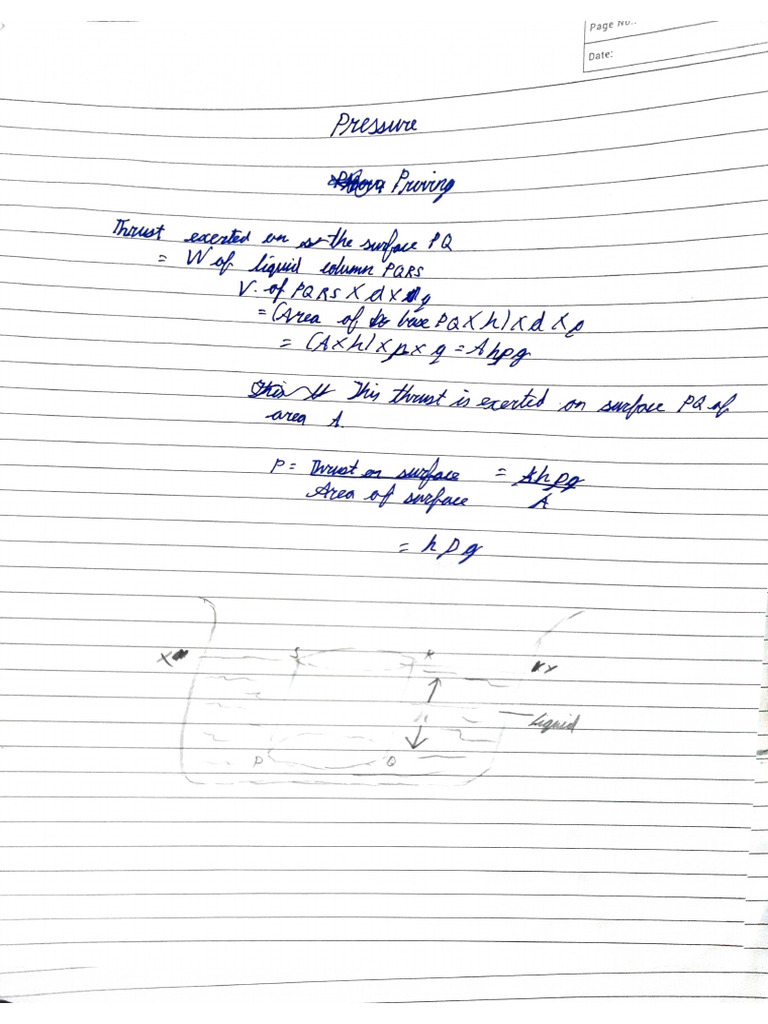 Page No.:
Date:
Pressure
Proving
Thrust exerted on the surface PQ
= W of liquid column PQRS
V. of PQRS X d X g
= (Area of base PQ X h) X d X ρ
= (A X h) X ρ X g = Ahρg
This thrust is exerted on surface PQ of
area A
P = Thrust on surface = Ahρg
Area of surface A
= hρg
X S R Y
Liquid
P Q